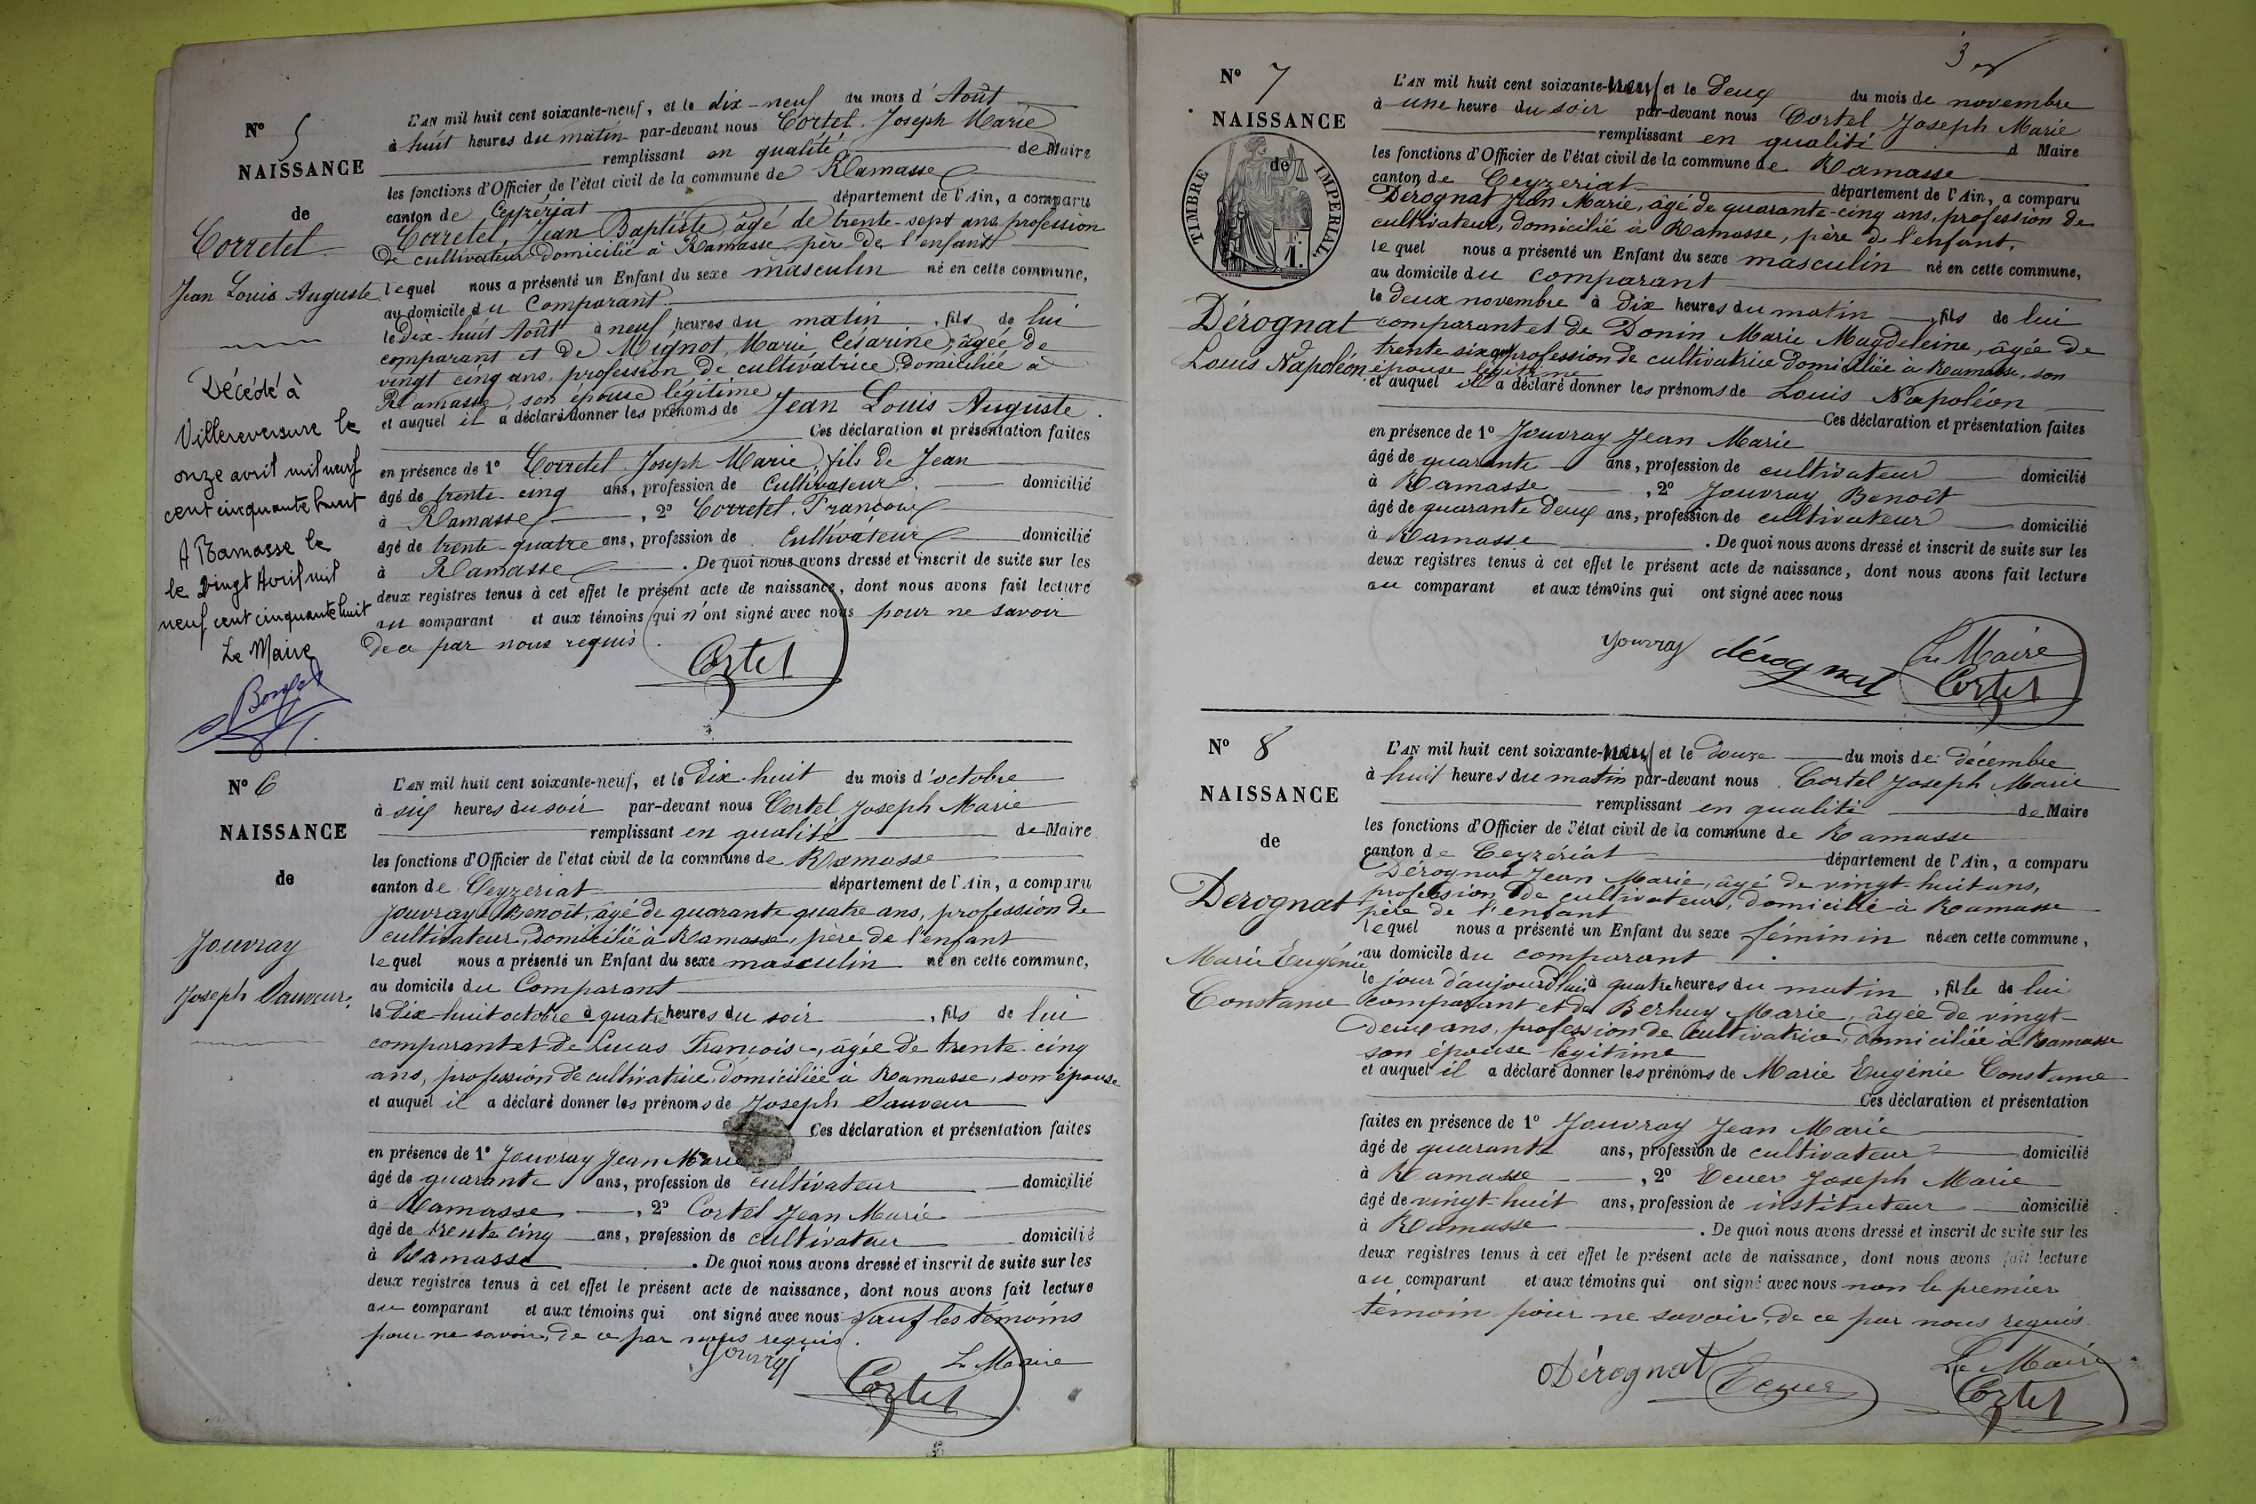 N° 5
NAISSANCE
de
Corretel
Jean Louis Auguste
Décédé à
Villereversure le
onze avril mil neuf
cent cinquante huit
A Ramasse le
le Vingt Avril mil
neuf cent cinquante huit
Le Maire
L'AN mil huit cent soixante-neuf, et le dix-neuf du mois d'Août
à huit heures du matin par-devant nous Cortel Joseph Marie
remplissant en qualité de Maire
les fonctions d'Officier de l'état civil de la commune de Ramasse
canton de Ceyzériat département de l'Ain, a comparu
Corretel, Jean Baptiste, âgé de trente-sept ans, profession
de cultivateur domicilié à Ramasse, père de l'enfant
lequel nous a présenté un Enfant du sexe masculin né en cette commune,
au domicile du Comparant
le dix-huit Août à neuf heures du matin, fils de lui
comparant et de Mignot, Marie Césarine, âgée de
vingt cinq ans, profession de cultivatrice, domiciliée à
Ramasse, son épouse légitime
et auquel il a déclaré donner les prénoms de Jean Louis Auguste.
Ces déclaration et présentation faites
en présence de 1° Corretel Joseph Marie, fils de Jean
âgé de trente-cinq ans, profession de Cultivateur, domicilié
à Ramasse, 2° Corretel, François
âgé de trente-quatre ans, profession de Cultivateur domicilié
à Ramasse. De quoi nous avons dressé et inscrit de suite sur les
deux registres tenus à cet effet le présent acte de naissance, dont nous avons fait lecture
au comparant et aux témoins qui n'ont signé avec nous pour ne savoir
de ce par nous requis.
Cortel
N° 6
NAISSANCE
de
Jouvray
Joseph Sauveur
L'AN mil huit cent soixante-neuf, et le Dix-huit du mois d'octobre
à six heures du soir par-devant nous Cortel Joseph Marie
remplissant en qualité de Maire
les fonctions d'Officier de l'état civil de la commune de Ramasse
canton de Ceyzeriat département de l'Ain, a comparu
Jouvray Benoit, âgé de quarante quatre ans, profession de
cultivateur, domicilié à Ramasse, père de l'enfant
lequel nous a présenté un Enfant du sexe masculin né en cette commune,
au domicile du Comparant
le dix-huit octobre à quatre heures du soir, fils de lui
comparant et de Lucas Françoise, âgée de trente-cinq
ans, profession de cultivatrice, domiciliée à Ramasse, son épouse
et auquel il a déclaré donner les prénoms de Joseph Sauveur
Ces déclaration et présentation faites
en présence de 1° Jouvray Jean Marie
âgé de quarante ans, profession de cultivateur domicilié
à Ramasse, 2° Cortel Jean Marie
âgé de trente cinq ans, profession de cultivateur domicilié
à Ramasse. De quoi nous avons dressé et inscrit de suite sur les
deux registres tenus à cet effet le présent acte de naissance, dont nous avons fait lecture
au comparant et aux témoins qui ont signé avec nous sauf les témoins
pour ne savoir, de ce par nous requis.
Jouvray Le Maire
Cortel
3
N° 7
NAISSANCE
de
TIMBRE IMPERIAL
1 f.
Dérognat
Louis Napoléon
L'AN mil huit cent soixante-neuf et le Deux du mois de novembre
à une heure du soir par-devant nous Cortel Joseph Marie
remplissant en qualité d Maire
les fonctions d'Officier de l'état civil de la commune de Ramasse
canton de Ceyzeriat département de l'Ain, a comparu
Dérognat Jean Marie, âgé de quarante-cinq ans, profession de
cultivateur, domicilié à Ramasse, père de l'enfant,
lequel nous a présenté un Enfant du sexe masculin né en cette commune,
au domicile du comparant
le deux novembre à dix heures du matin, fils de lui
comparant et de Donin Marie Magdeleine, âgée de
trente six ans profession de cultivatrice domiciliée à Ramasse, son
épouse légitime
et auquel il a déclaré donner les prénoms de Louis Napoléon
Ces déclaration et présentation faites
en présence de 1° Jouvray Jean Marie
âgé de quarante ans, profession de cultivateur domicilié
à Ramasse, 2° Jouvray Benoît
âgé de quarante deux ans, profession de cultivateur domicilié
à Ramasse. De quoi nous avons dressé et inscrit de suite sur les
deux registres tenus à cet effet le présent acte de naissance, dont nous avons fait lecture
au comparant et aux témoins qui ont signé avec nous
Jouvray dérognat Le Maire
Cortel
N° 8
NAISSANCE
de
Derognat
Marie Eugénie
Constance
L'AN mil huit cent soixante-neuf et le douze du mois de décembre
à huit heures du matin par-devant nous Cortel Joseph Marie
remplissant en qualité de Maire
les fonctions d'Officier de l'état civil de la commune de Ramasse
canton de Ceyzériat département de l'Ain, a comparu
Dérognat Jean Marie, âgé de vingt-huit ans,
profession de cultivateur, domicilié à Ramasse
père de l'enfant
lequel nous a présenté un Enfant du sexe féminin née en cette commune,
au domicile du comparant
le jour d'aujourd'hui à quatre heures du matin, fille de lui
comparant et de Berhuy Marie, âgée de vingt-
deux ans, profession de cultivatrice, domiciliée à Ramasse
son épouse légitime
et auquel il a déclaré donner les prénoms de Marie Eugénie Constance
Ces déclaration et présentation
faites en présence de 1° Jouvray Jean Marie
âgé de quarante ans, profession de cultivateur domicilié
à Ramasse, 2° Ecuer Joseph Marie
âgé de vingt-huit ans, profession de instituteur domicilié
à Ramasse. De quoi nous avons dressé et inscrit de suite sur les
deux registres tenus à cet effet le présent acte de naissance, dont nous avons fait lecture
au comparant et aux témoins qui ont signé avec nous non le premier
témoin pour ne savoir, de ce par nous requis.
Dérognat Ecuer Le Maire
Cortel